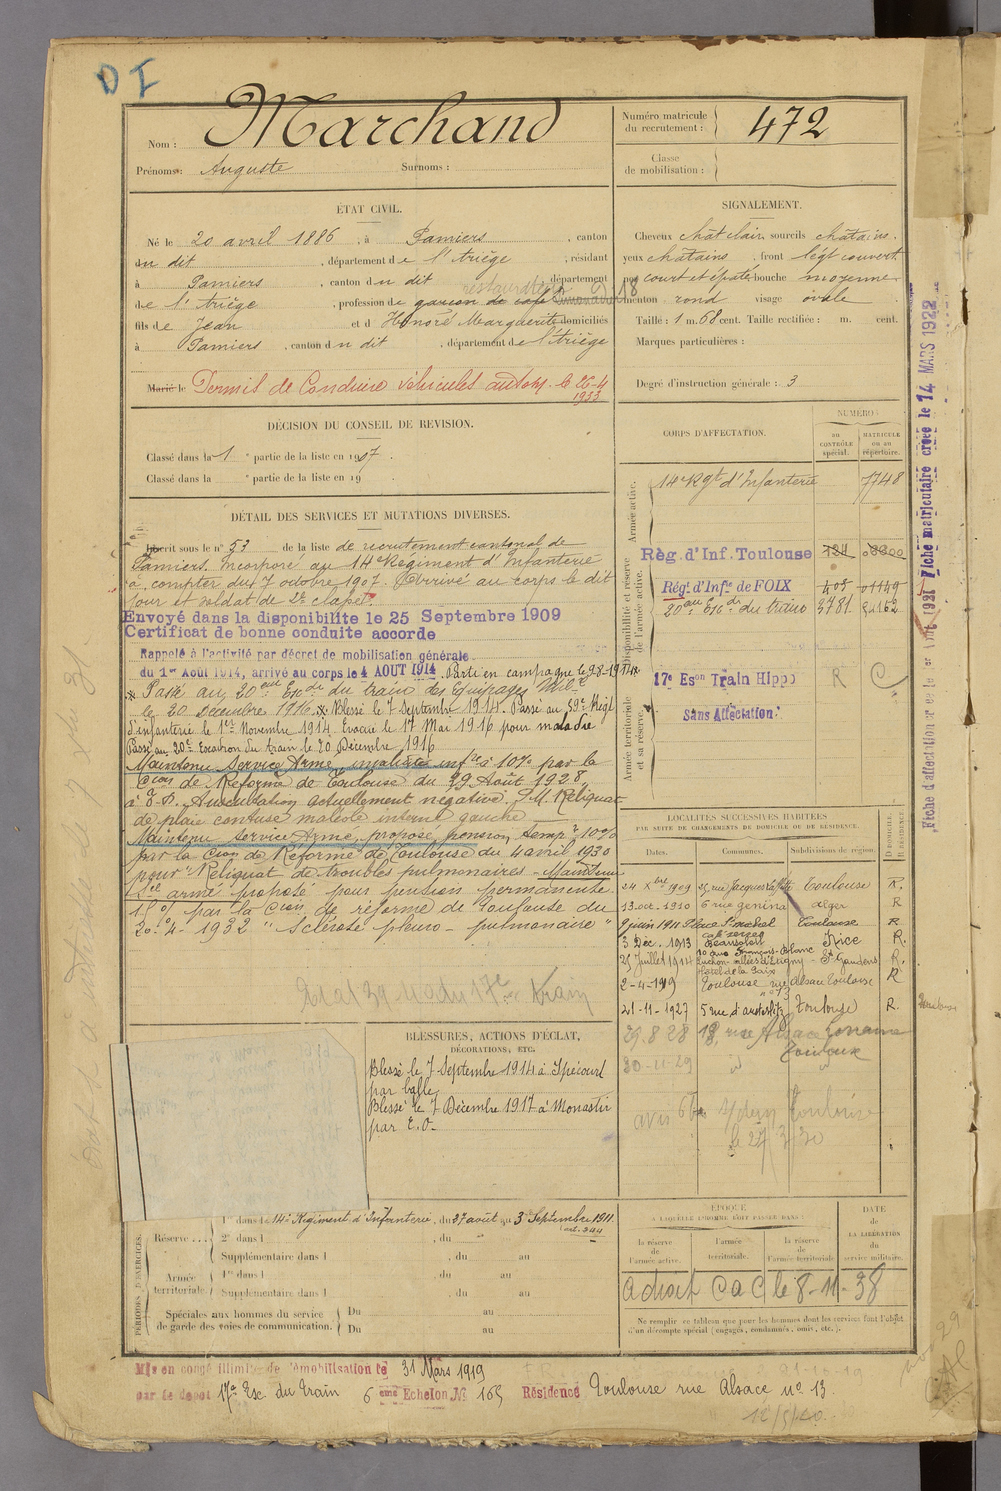 D I
Nom : Marchand
Prénoms : Auguste Surnoms :
Numéro matricule
du recrutement : 472
Classe
de mobilisation :
ÉTAT CIVIL.
Né le 20 avril 1886, à Pamiers, canton
du dit, département de l'Ariège, résidant
à Pamiers, canton du dit, département
de l'Ariège, profession de garçon de café
fils de Jean et d Honoré Marguerite domiciliés
à Pamiers, canton du dit, département de l'Ariège
Marié le Permis de Conduire véhicules autom. le 26-4
1933
SIGNALEMENT.
Cheveux châtclair sourcils châtains.
yeux châtains, front légt couvert
nez court et épaté bouche moyenne
menton rond visage ovale
Taille : 1 m. 68 cent. Taille rectifiée : m. cent.
Marques particulières :
Degré d'instruction générale : 3
DÉCISION DU CONSEIL DE REVISION.
Classé dans la 1e partie de la liste en 1907.
Classé dans la e partie de la liste en 19
DÉTAIL DES SERVICES ET MUTATIONS DIVERSES.
Inscrit sous le n° 33 de la liste de recrutement cantonal de
Pamiers. Incorporé au 14e Régiment d'Infanterie
à compter du 7 octobre 1907. Arrivé au corps le dit
jour et soldat de 2e classe.
Envoyé dans la disponibilité le 25 Septembre 1909
Certificat de bonne conduite accordé
Rappelé à l'activité par décret de mobilisation générale
du 1er Août 1914, arrivé au corps le 4 AOUT 1914. Parti en campagne le
Passé au 20eme Escdon du train des Équipages Milre
le 20 Décembre 1916. Blessé le 7 Septembre 1914. Passé au 59e Régt
d'infanterie le 1er Novembre 1914. Évacué le 17 Mai 1916 pour maladie
Passé au 20e Escadron du train le 20 Décembre 1916
Maintenu Service Armé, invalidité infre à 10% par la
Cion de Réforme de Toulouse du 29 Août 1928,
Auscultation actuellement négative. Reliquat
de plaie contuse maléole interne gauche
Maintenu service Armé, proposé pension tempre 10%
par la Cion de Réforme de Toulouse du 4 avril 1930
pour Reliquat de troubles pulmonaires - Maintenu
Sce armé proposé pour pension permanente
15% par la Cion de réforme de Toulouse du
20-4-1932 "Sclérose pleuro-pulmonaire"
CORPS D'AFFECTATION.
NUMÉROS
au
CONTRÔLE
spécial.
MATRICULE
ou au
répertoire.
Armée active.
14e Rgt d'Infanterie 7748
Disponibilité et réserve
de l'armée active.
Rég. d'Inf. Toulouse
Régt d'Infie de FOIX
20eme Escdn du train
Armée territoriale
et sa réserve.
17e Eson Train Hippo R C
Sans Affectation
LOCALITÉS SUCCESSIVES HABITÉES
PAR SUITE DE CHANGEMENTS DE DOMICILE OU DE RÉSIDENCE.
Dates. Communes. Subdivisions de région. D DOMICILE. R RÉSIDENCE.
24 Xbre 1909 Toulouse R.
13.oct.1910 6 rue Alger R
9 juin 1911 Place St michel Toulouse R
3 Déc. 1913 Nice R.
25 Juillet 1914 Luchon-allées d'Etigny - St Gaudens R.
Hôtel de la Paix
2-4-1919 Toulouse rue d'alsace Toulouse R
21-11-1927 5 rue d'austerlitz Toulouse R.
29.8 28 18, rue Alsace Lorraine
Toulouse
30-11-29
BLESSURES, ACTIONS D'ÉCLAT,
DÉCORATIONS, ETC.
Blessé le 7 Septembre 1914 à Ipécourt
par balle
Blessé le 7 Décembre 1917 à Monastir
par E.O.
PÉRIODES D'EXERCICES.
1re dans le 14e Régiment d'Infanterie, du 27 août au 3 Septembre 1911
Réserve ... 2e dans l , du au
Supplémentaire dans l , du au
Armée
territoriale. 1re dans l , du au
Supplémentaire dans l , du au
Spéciales aux hommes du service
de garde des voies de communication. Du au
Du au
ÉPOQUE
A LAQUELLE L'HOMME DOIT PASSER DANS
la réserve
de
l'armée active.
l'armée
territoriale.
la réserve
de
l'armée territoriale
DATE
de
LA LIBÉRATION
du
service militaire.
a droit C a C le 8-11-38
Ne remplir ce tableau que pour les hommes dont les services font l'objet
d'un décompte spécial (engagés, condamnés, omis, etc.).
Mis en congé illimité de démobilisation le 31 Mars 1919
par le dépôt 17e Esc du Train 6eme Echelon No 165 Résidence Toulouse rue Alsace no 13.
Fiche matriculaire créée le 14 MARS 1922